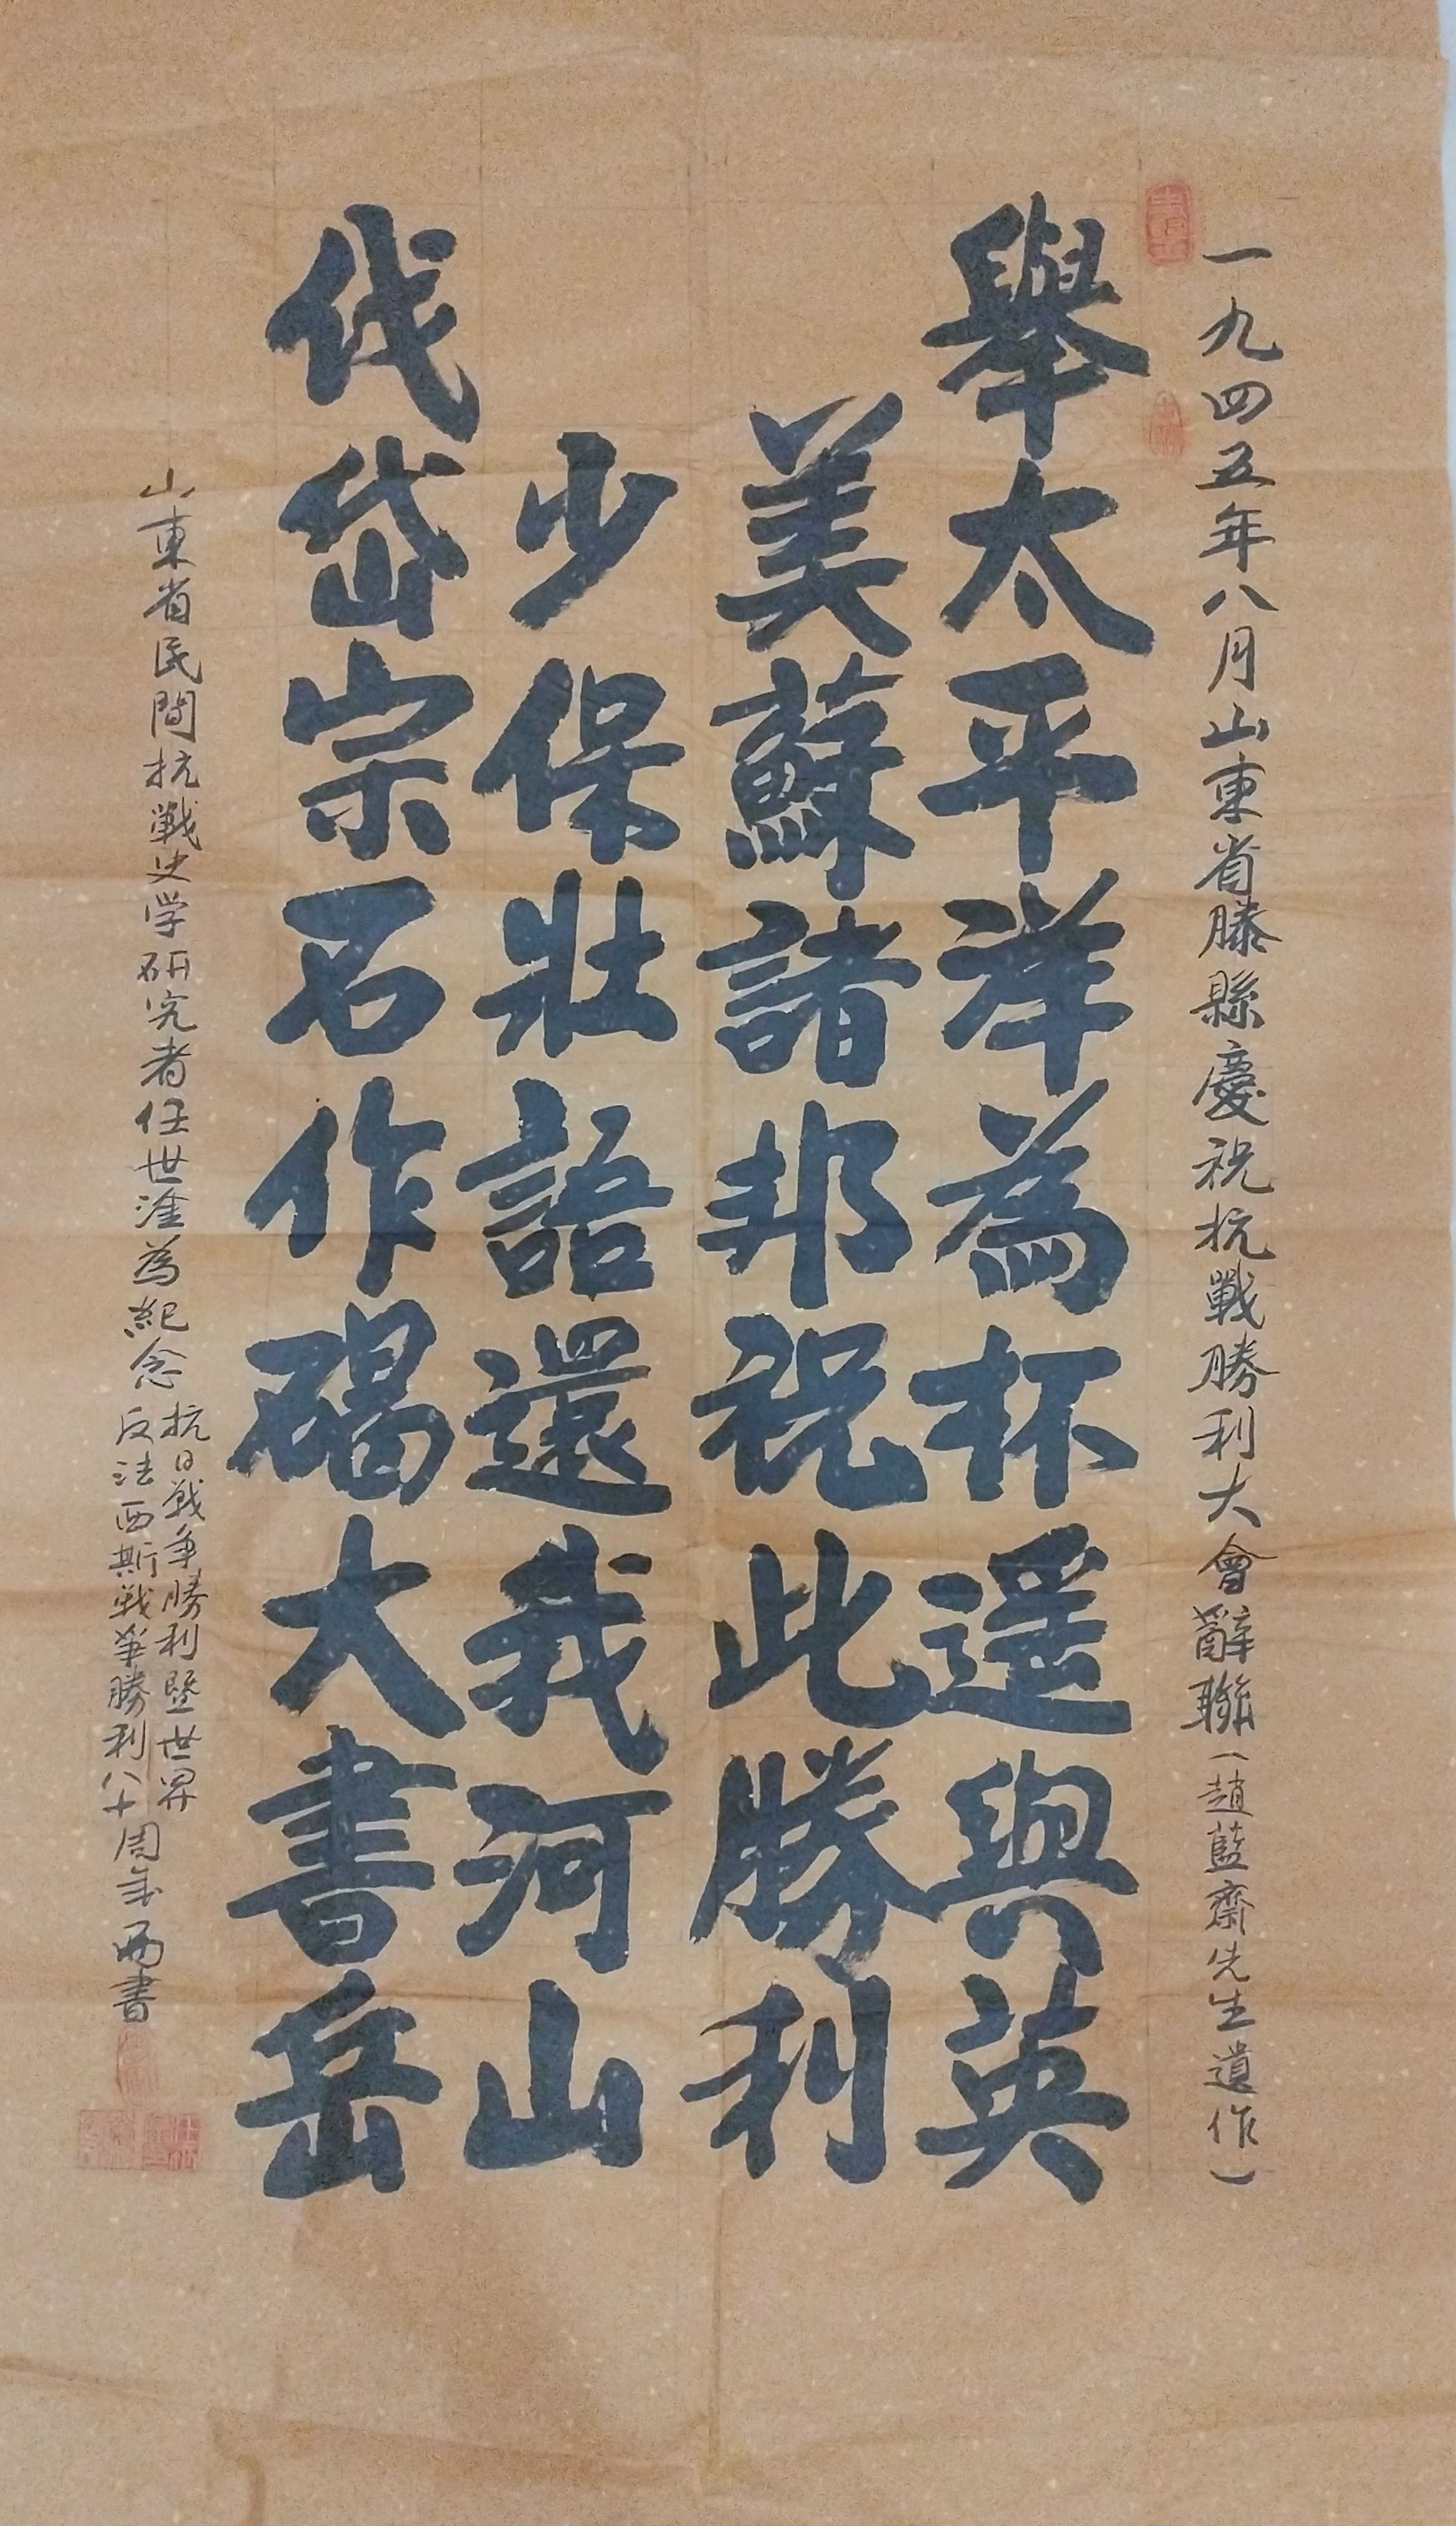 一九四五年八月山東省滕縣慶祝抗戰勝利大會辭聯（趙藍齋先生遺作）
舉太平洋為杯遥與英
美蘇諸邦祝此勝利
伐岱宗石作碣大書岳
少保壯語還我河山
山東省民間抗戰史学研究者任世淦為紀念
抗日戰争勝利暨世界
反法西斯戰爭勝利八十周年而書